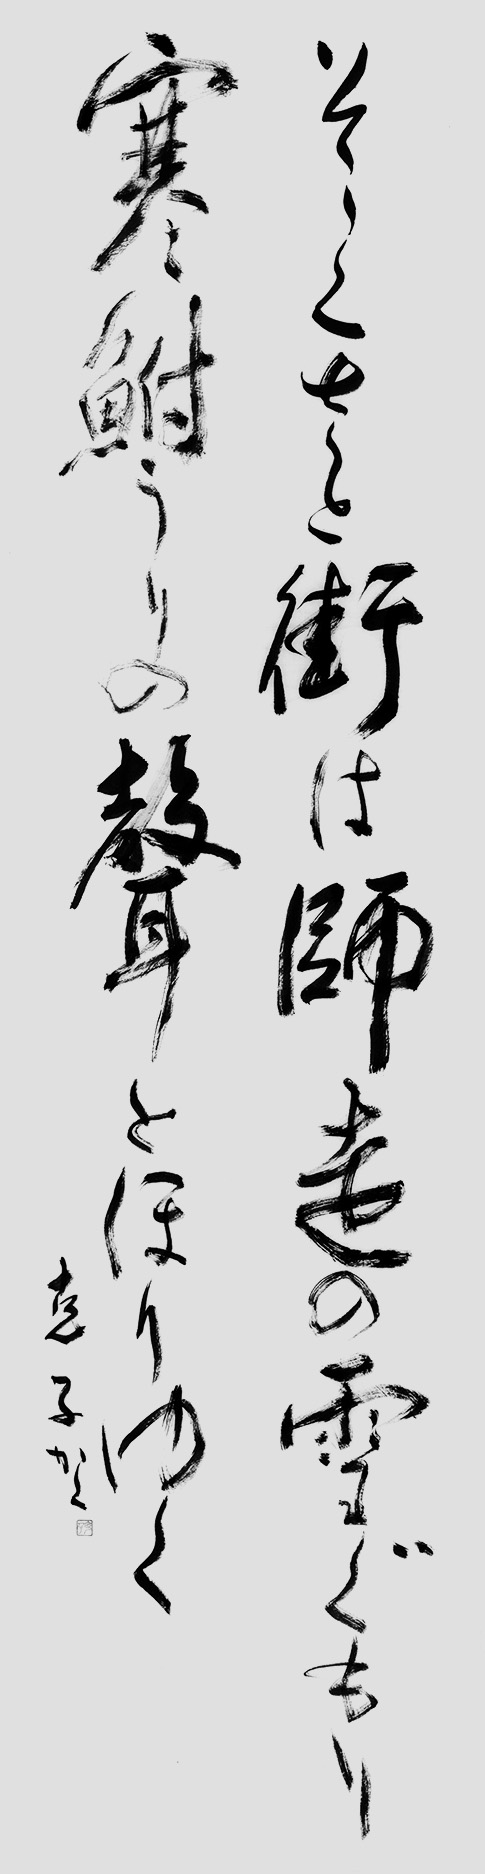 そゝくさと街は師走の雪ぐもり
寒鮒うりの聲とほりゆく
恵子かく